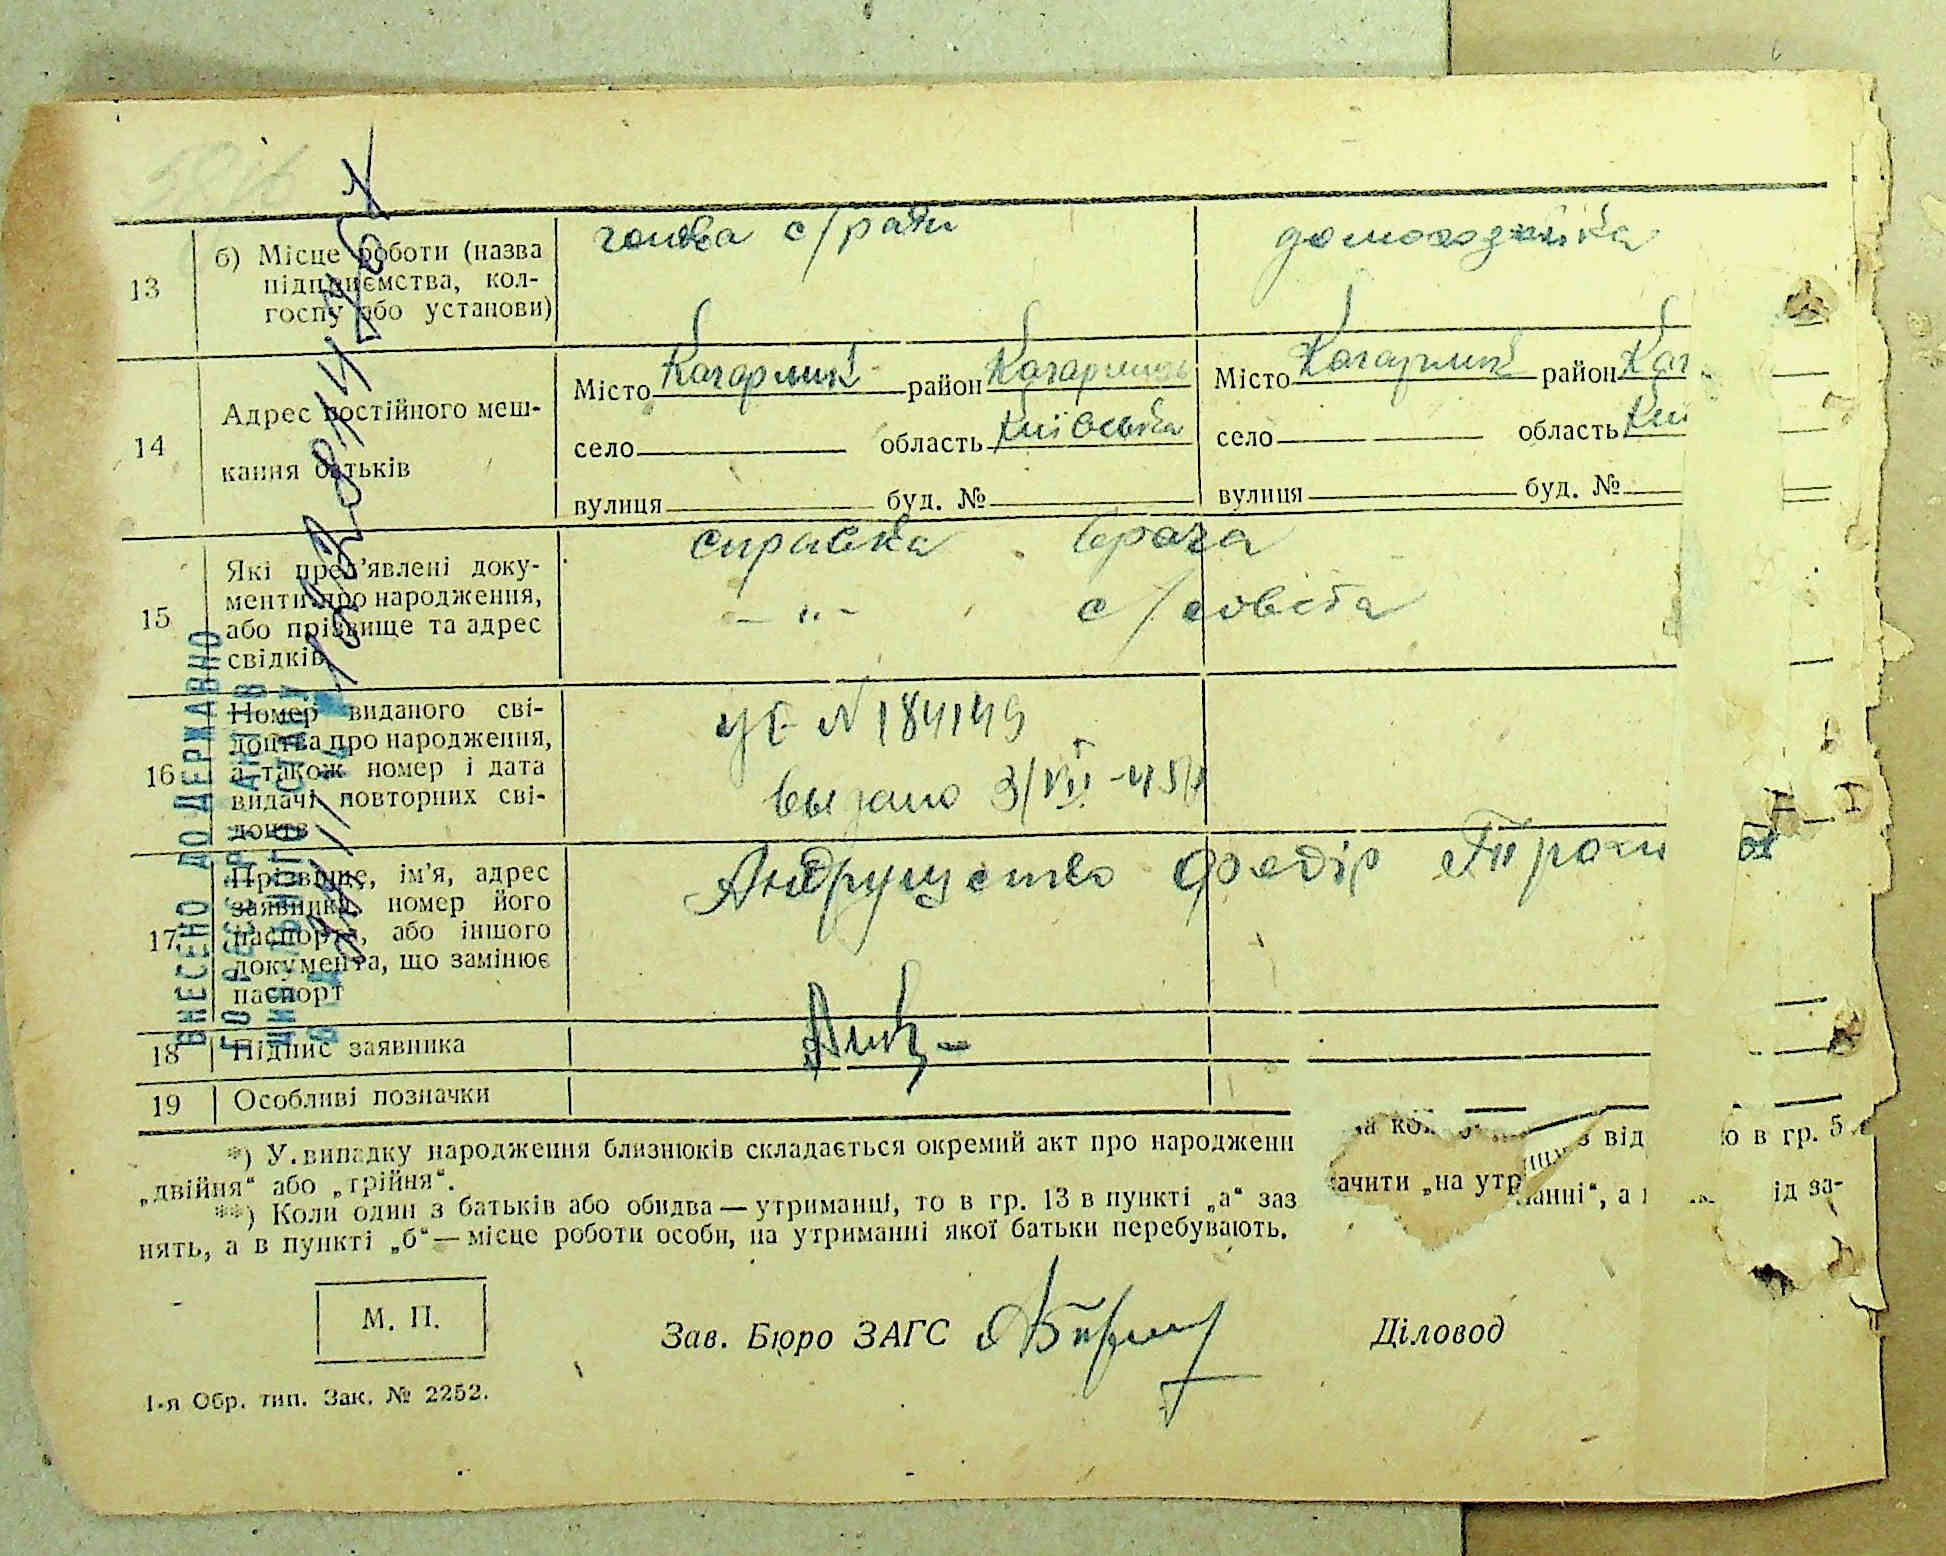 13
б) Місце роботи (назва
підприємства, кол-
госпу або установи)
голова с/ради
домогоспод
14
Адрес постійного меш-
кання батьків
Місто Кагарлик район Кагарлицьк
село область Київська
вулиця буд. №
Місто Кагарлик район Каг
село область Киї
вулиця буд. №
15
Які пред’явлені доку-
менти про народження,
або прізвище та адрес
свідків
справка врача
— „ — с/совета
16
Номер виданого сві-
доцтва про народження,
а також номер і дата
видачі повторних сві-
доцтв
УБ N 184149
выдано 3/VIII-45г
17
Прізвище, ім’я, адрес
заявника, номер його
паспорта, або іншого
документа, що замінює
паспорт
Андрущенко Федір
18
Підпис заявника
19
Особливі позначки
ВНЕСЕНО ДО ДЕРЖАВНОГО РЕЄСТРУ АКТІВ ЦИВІЛЬНОГО СТАНУ
*) У випадку народження близнюків складається окремий акт про народженн на кож від ю в гр. 5
„двійня“ або „трійня“.
**) Коли один з батьків або обидва — утриманці, то в гр. 13 в пункті „а“ заз ачити „на утр анні“, а ід за-
нять, а в пункті „б“ — місце роботи особи, на утриманні якої батьки перебувають.
М. П.
Зав. Бюро ЗАГС
Діловод
1-я Обр. тип. Зак. № 2252.